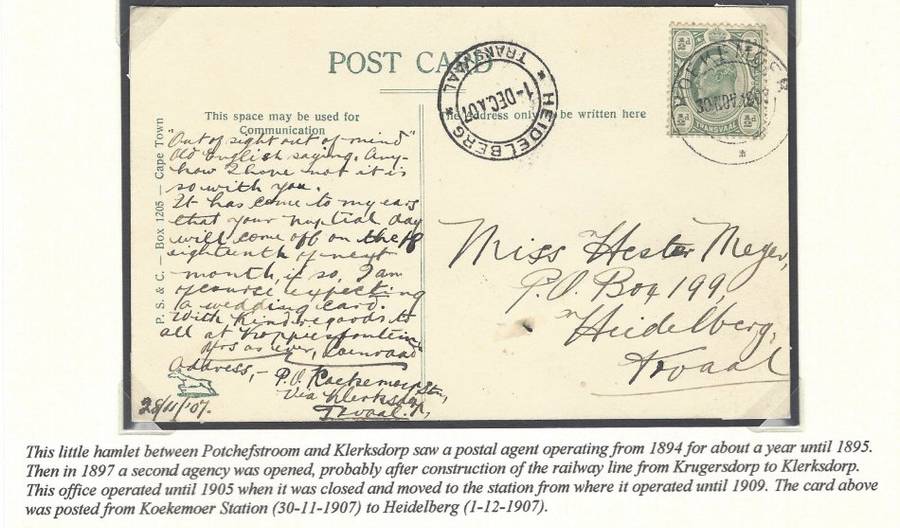 POST CARD
This space may be used for
Communication
The Address only to be written here
HEIDELBERG
TRANSVAAL
1-DEC.07
30 NOV
TRANSVAAL
½d
½d
P. S. & C. — Box 1205 — Cape Town
"Out of sight out of mind"
Old English saying. Any-
how I hope not it is
so with you.
It has come to my ears
that your nuptial day
will come off on the 18
eighteenth of next
month, if so, I am
of course expecting
a wedding card.
With kind regards to
all at
Yrs as ever, Coenraad
Address,- P.O. Koekemoer Stn,
Via Klerksdorp
Tvaal.
28/11/07.
Miss Hester Meyer,
P.O. Box 199,
Heidelberg,
Tvaal
This little hamlet between Potchefstroom and Klerksdorp saw a postal agent operating from 1894 for about a year until 1895.
Then in 1897 a second agency was opened, probably after construction of the railway line from Krugersdorp to Klerksdorp.
This office operated until 1905 when it was closed and moved to the station from where it operated until 1909. The card above
was posted from Koekemoer Station (30-11-1907) to Heidelberg (1-12-1907).